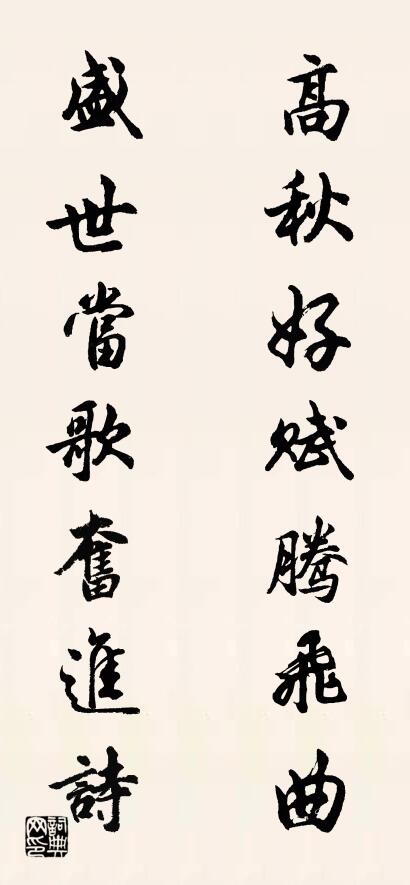 高秋好赋腾飛曲
盛世當歌奮進詩
詞典网印